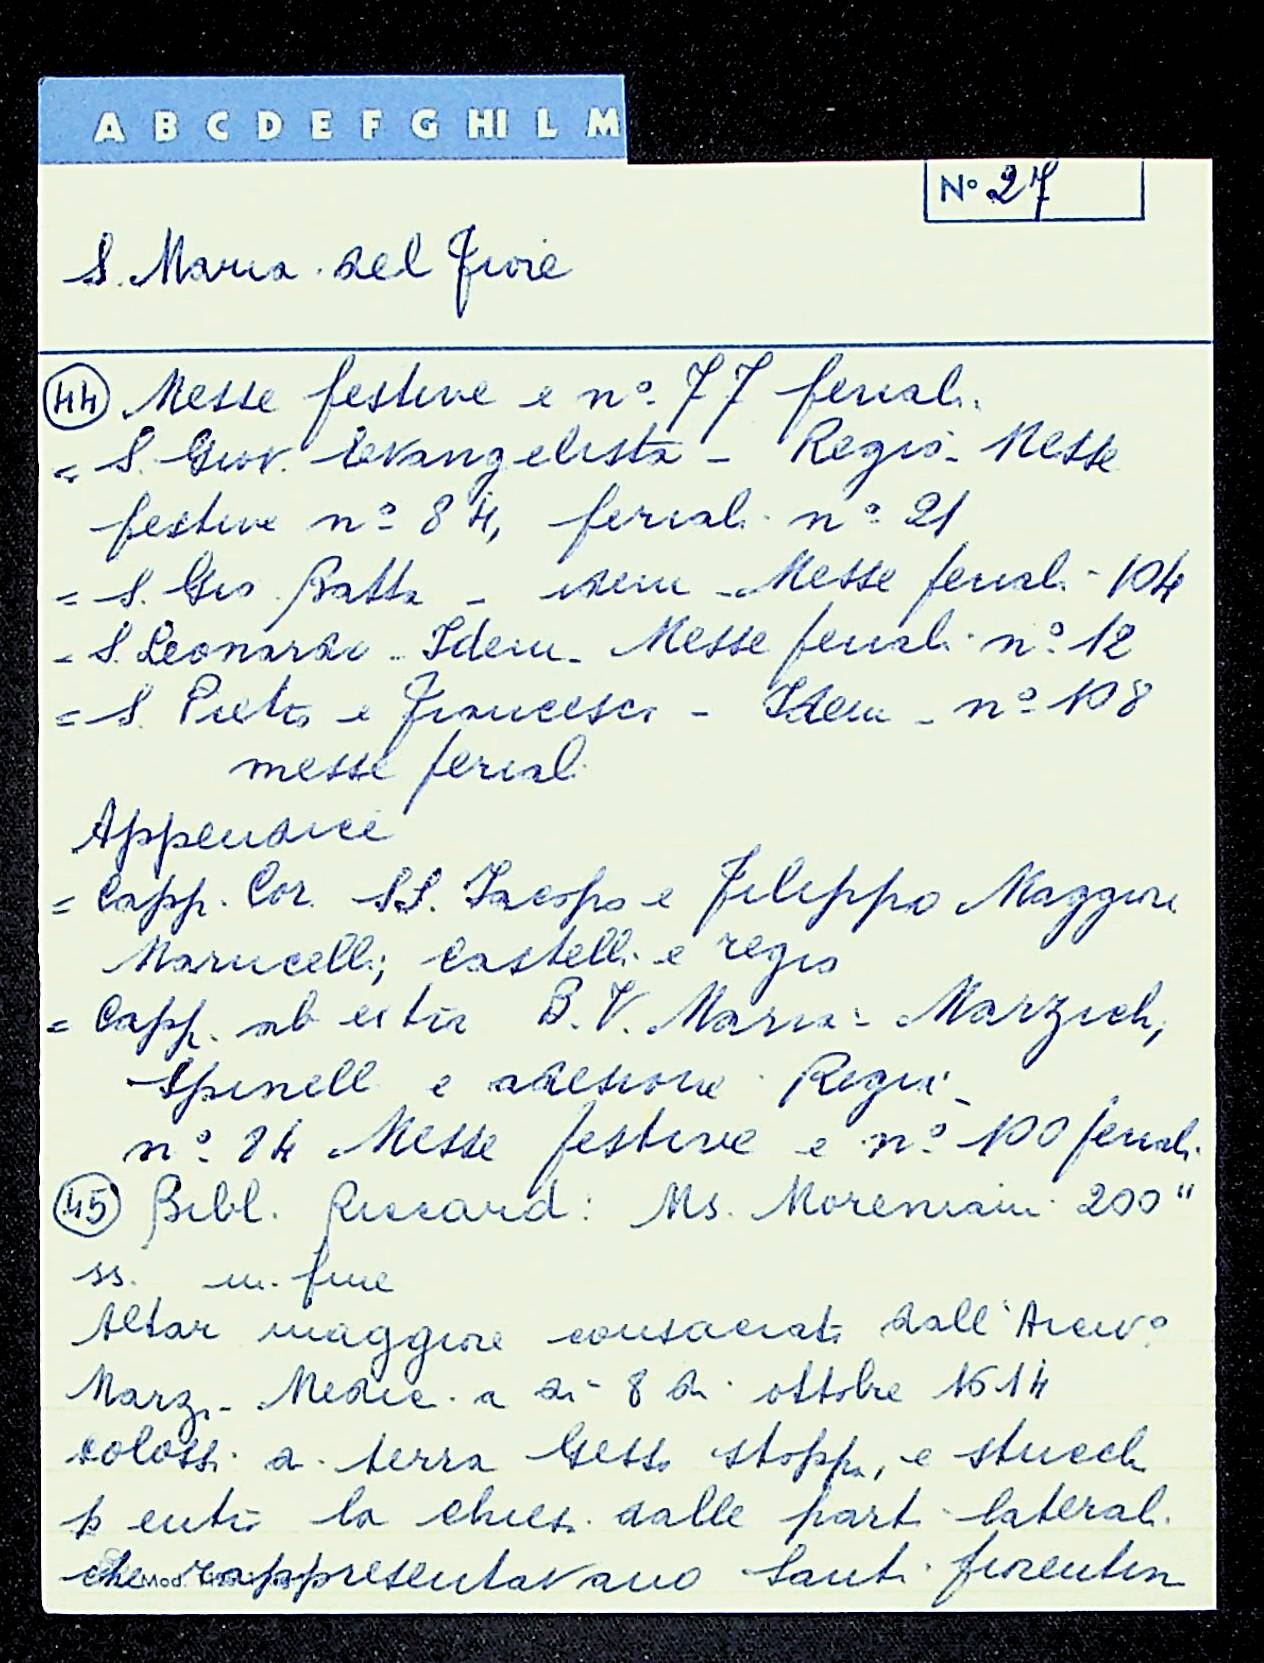 A B C D E F G HI L M
N° 27
S. Maria del Fiore
44 Messe festive e n° 77 feriali.
= S. Giov. Evangelista - Regio - Messe
festive n° 84, feriali n° 21
= S. Gio Batta - idem - Messe feriali - 104
= S. Leonardo - Idem - Messe feriali n° 12
= S. Pietro e Francesco - Idem - n° 108
messe feriali
Appendice
= Capp. Cor. SS. Iacopo e Filippo Maggiore
Marucelli; Castelli e regio
= Capp. ab extra B. V. Maria - Marzich,
Spinelli e adesione Regia -
n° 84 Messe festive e n° 100 feriali.
45 Bibl. Riccard: Ms. Moreniani 200"
ss. in fine
Altar maggiore consacrato dall'Arciv°
Marzi - Medici a di 8 di ottobre 1614
colossi a terra Gesso stoppa, e stucchi
p entro la chiesa dalle parti laterali
che rappresentavano Santi fiorentin
Mod.